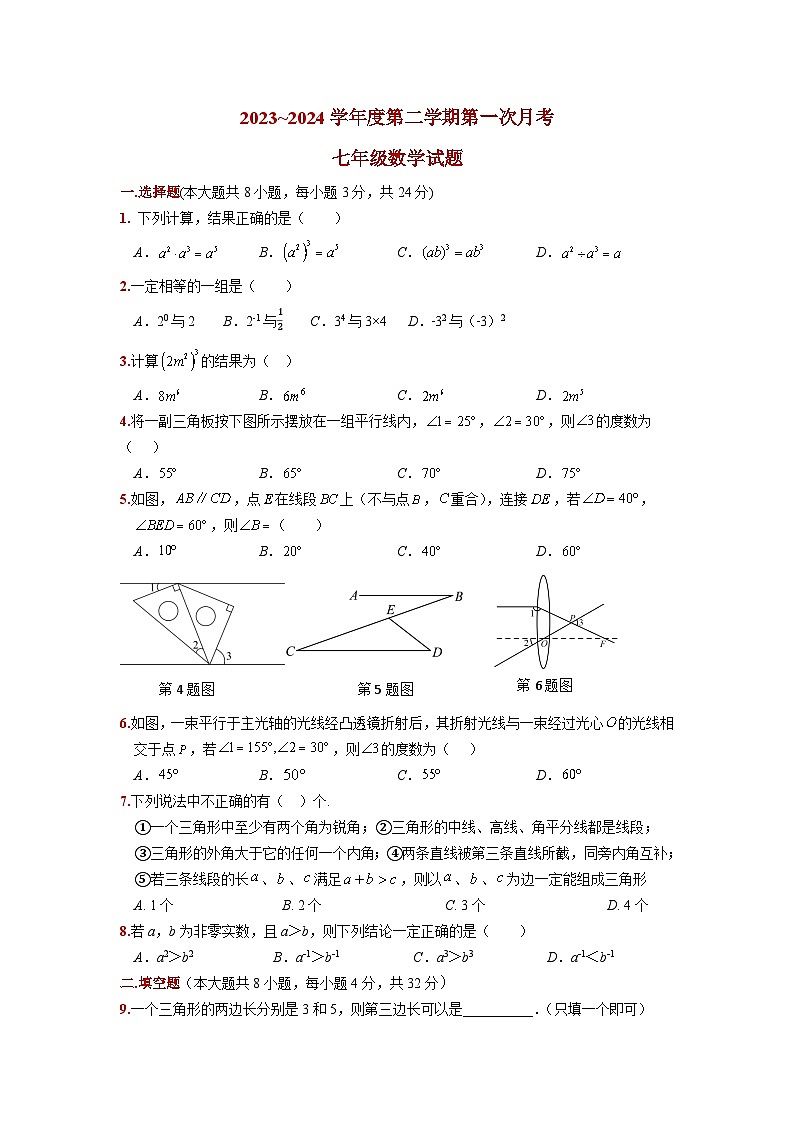 2023~2024 学年度第二学期第一次月考
七年级数学试题
一.选择题(本大题共 8 小题，每小题 3 分，共 24 分)
1. 下列计算，结果正确的是（　　）
A. a²·a³=a⁵ B. (a²)³=a⁵ C. (ab)³=ab³ D. a²÷a³=a
2.一定相等的一组是（　　）
A. 2⁰与 2 B. 2⁻¹与1/2 C. 3⁴与 3×4 D. -3²与（-3）²
3.计算(2m²)³的结果为（　）
A. 8m⁶ B. 6m⁶ C. 2m⁶ D. 2m⁵
4.将一副三角板按下图所示摆放在一组平行线内，∠1= 25°，∠2= 30°，则∠3的度数为
（　）
A. 55° B. 65° C. 70° D. 75°
5.如图，AB∥CD，点E在线段BC上（不与点B，C重合），连接DE，若∠D= 40°，
∠BED= 60°，则∠B=（　　）
A. 10° B. 20° C. 40° D. 60°
1 2 3
A B E C D
1 2 3 P O F
第 4 题图 第 5 题图 第 6 题图
6.如图，一束平行于主光轴的光线经凸透镜折射后，其折射光线与一束经过光心O的光线相
交于点P，若∠1= 155°,∠2= 30°，则∠3的度数为（　）
A. 45° B. 50° C. 55° D. 60°
7.下列说法中不正确的有（　）个.
①一个三角形中至少有两个角为锐角；②三角形的中线、高线、角平分线都是线段；
③三角形的外角大于它的任何一个内角；④两条直线被第三条直线所截，同旁内角互补；
⑤若三条线段的长a、b、c满足a+b>c，则以a、b、c为边一定能组成三角形
A. 1 个 B. 2 个 C. 3 个 D. 4 个
8.若 a，b 为非零实数，且 a＞b，则下列结论一定正确的是（　　）
A. a²＞b² B. a⁻¹＞b⁻¹ C. a³＞b³ D. a⁻¹＜b⁻¹
二.填空题（本大题共 8 小题，每小题 4 分，共 32 分）
9.一个三角形的两边长分别是 3 和 5，则第三边长可以是__________.（只填一个即可）